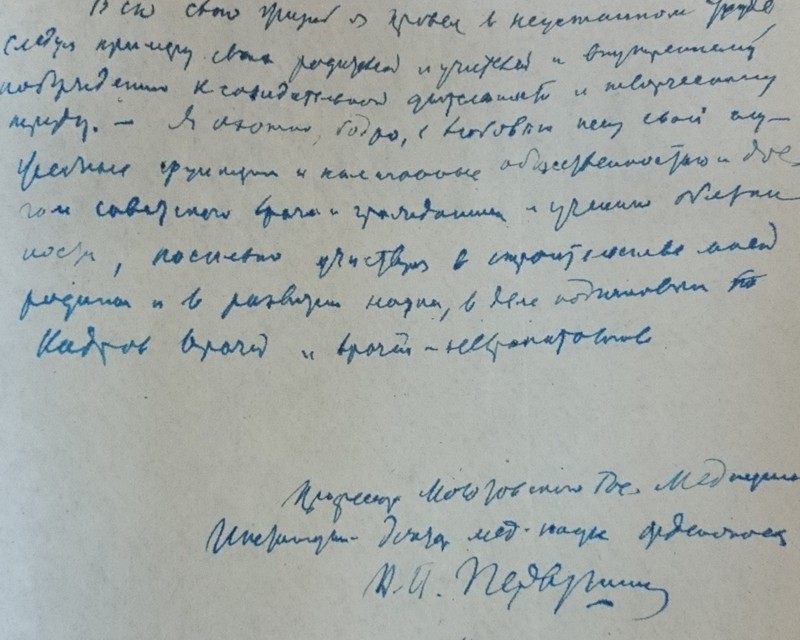 Всю свою жизнь я провел в неустанном труде
следуя примеру своих родителей и учителей и внутреннему
побуждению к созидательной деятельности и творческому
труду. — Я охотно, бодро, с любовью несу свои слу-
жебные функции и возложенные общественностью и дол-
гом советского врача и гражданина и ученого обязан
ности, посильно участвуя в строительстве моей
родины и в развитии науки, в деле подготовки
Кадров врачей и врачей-невропатологов
Профессор Московского Гос. Медицин
Института доктор мед. наук орденоносец
Первушин